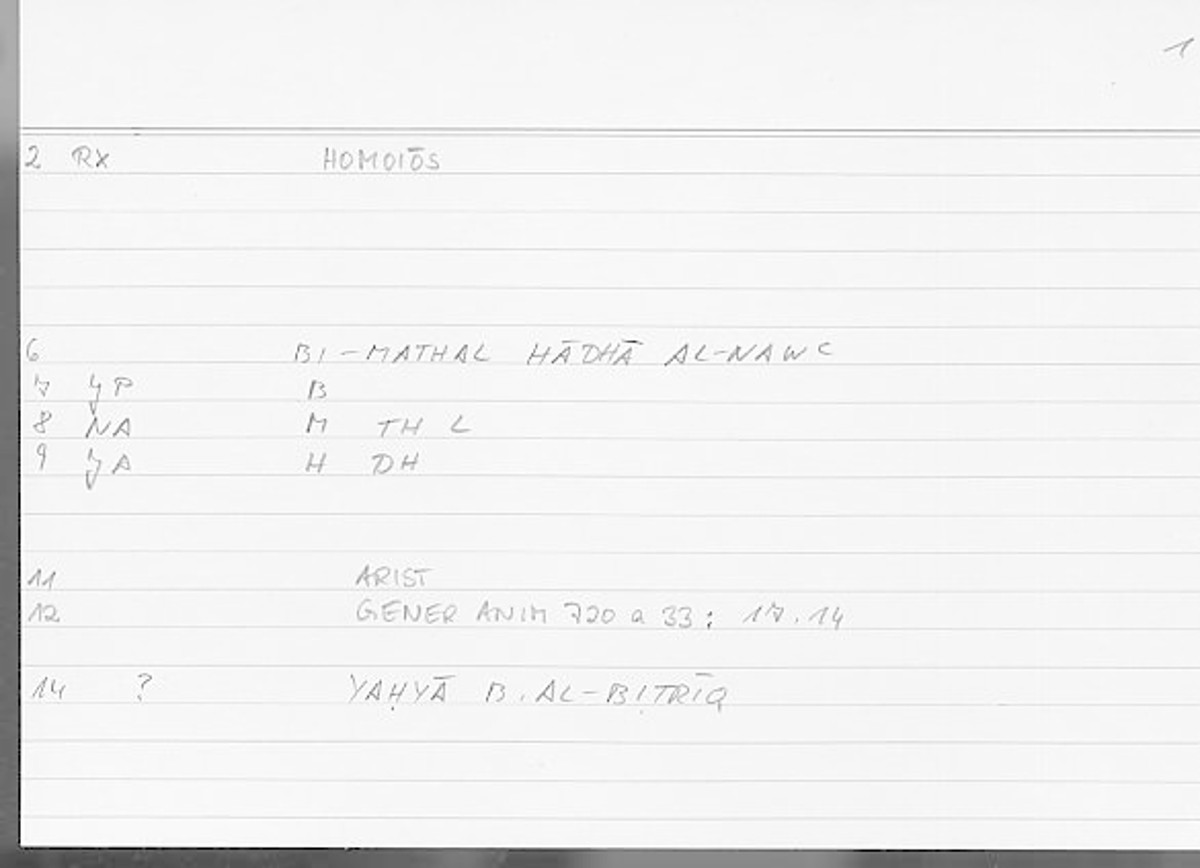 1
2 RX HOMOIŌS
6 BI-MATHAL HĀDHĀ AL-NAWC
7 YP B
8 NA M TH L
9 YA H DH
11 ARIST
12 GENER ANIM 720 a 33 : 17.14
14 ? YAḤYĀ B. AL-BIṬRĪQ